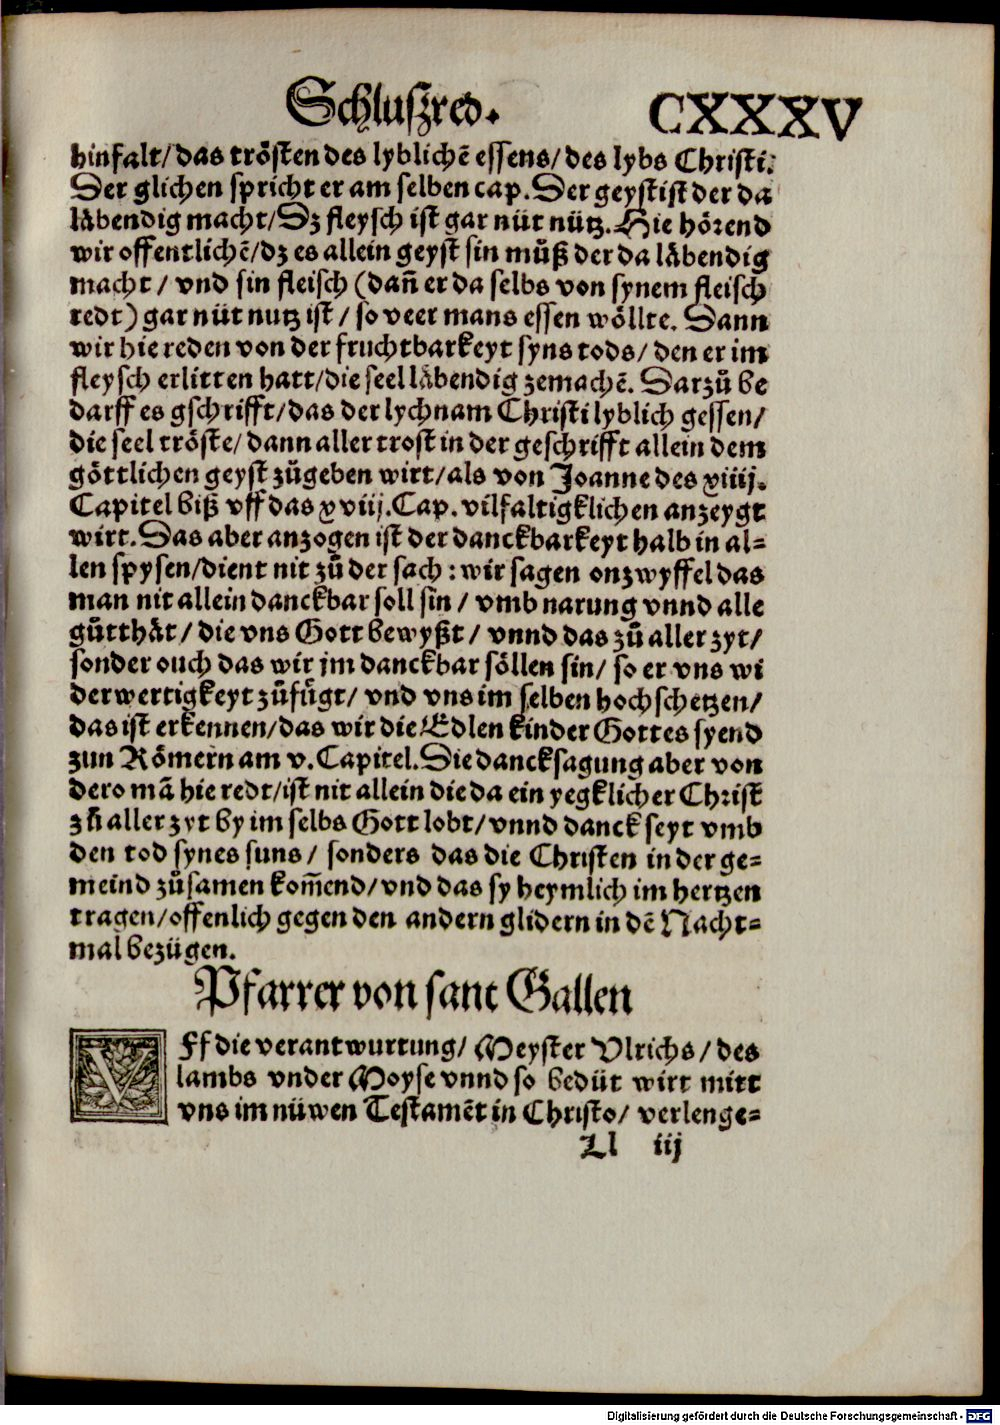 Schluszred.
CXXXV
hinfalt/ das trösten des lyblichē essens/ des lybs Christi.
Der glichen spricht er am selben cap. Der geyst ist der da
läbendig macht/ Dz fleysch ist gar nüt nütz. Hie hörend
wir offentlichē/ dz es allein geyst sin můß der da läbendig
macht / vnd sin fleisch (dañ er da selbs von synem fleisch
redt) gar nüt nutz ist / so veer mans essen wöllte. Dann
wir hie reden von der fruchtbarkeyt syns tods/ den er im
fleysch erlitten hatt/ die seel läbendig zemachē. Darzů be
darff es gschrifft/ das der lychnam Christi lyblich gessen/
die seel tröste/ dann aller trost in der geschrifft allein dem
göttlichen geyst zůgeben wirt/ als von Joanne des xiiij.
Capitel biß vff das xviij. Cap. vilfaltigklichen anzeygt
wirt. Das aber anzogen ist der danckbarkeyt halb in al⸗
len spysen/ dient nit zů der sach : wir sagen onzwyffel das
man nit allein danckbar soll sin / vmb narung vnnd alle
gůtthät / die vns Gott bewyßt / vnnd das zů aller zyt/
sonder ouch das wir jm danckbar söllen sin/ so er vns wi
derwertigkeyt zůfügt/ vnd vns im selben hoch schetzen/
das ist erkennen/ das wir die Edlen kinder Gottes syend
zun Römern am v. Capitel. Die dancksagung aber von
dero mā hie redt/ ist nit allein die da ein yegklicher Christ
zů aller zyt by im selbs Gott lobt/ vnnd danck seyt vmb
den tod synes suns/ sonders das die Christen in der ge⸗
meind zůsamen kom̄end/ vnd das sy heymlich im hertzen
tragen/ offenlich gegen den andern glidern in dē Nacht⸗
mal bezügen.
Pfarrer von sant Gallen
VFf die verantwurtung/ Meyster Vlrichs/ des
lambs vnder Moyse vnnd so bedüt wirt mitt
vns im nüwen Testamēt in Christo/ verlenge⸗
Ll iij
Digitalisierung gefördert durch die Deutsche Forschungsgemeinschaft - DFG